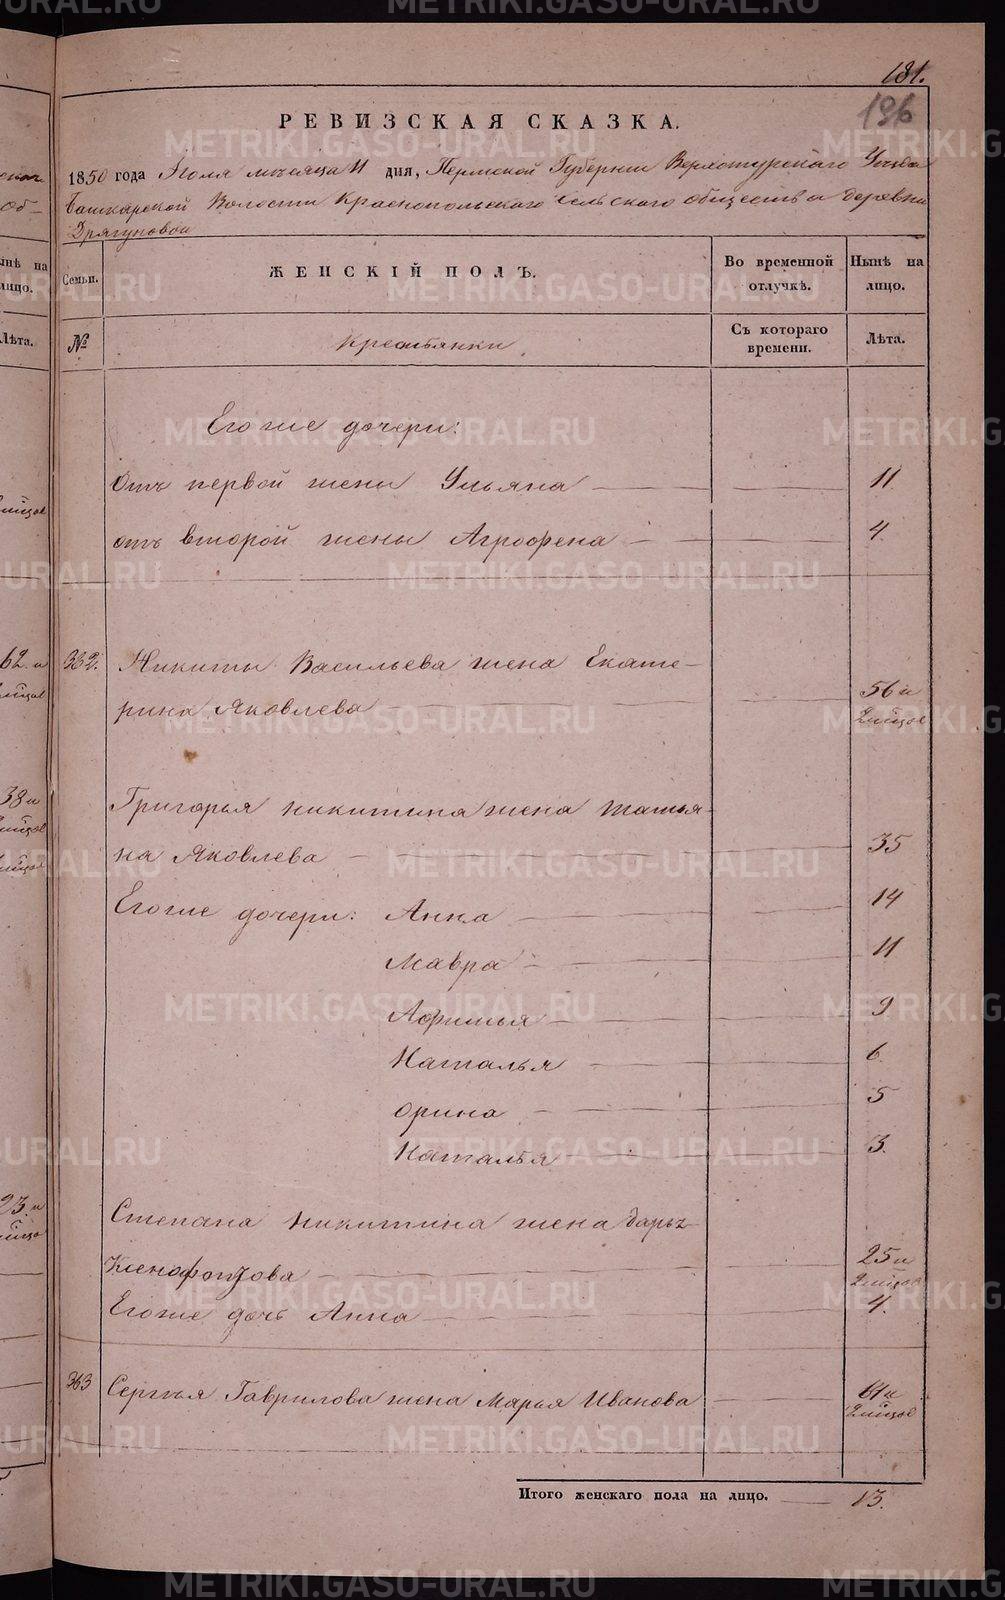 181.
196
РЕВИЗСКАЯ СКАЗКА.
1850 года Июля месяца 11 дня, Пермской Губернии Верхотурскаго Уезда
Башкарской Волости Краснопольскаго сельскаго общества деревни
Дрягуновой
Семьи.
ЖЕНСКІЙ ПОЛЪ.
Во временной отлучкѣ.
Нынѣ на лицо.
№
Крестьянки
Съ котораго времени.
Лѣта.
Егоже дочери:
Отъ первой жены Ульяна 11.
отъ второй жены Агрофена 4.
332. Никиты Васильева жена Екате-
рина Яковлева 56 и 2 мѣцов
Григорья Никитина жена Татья-
на Яковлева 35
Егоже дочери: Анна 14
Мавра 11
Афимья 9
Наталья 6.
Орина 5
Наталья 3.
Степана Никитина жена Дарья
Ксенофонтова 25 и 2 мѣцов
Егоже дочь Анна 4.
333 Сергѣя Гаврилова жена Марья Иванова 61 и 2 мѣцов
Итого женскаго пола на лицо. 13.
62. и
38 и
23. и
ынѣ на
лицо.
Лѣта.
METRIKI.GASO-URAL.RU